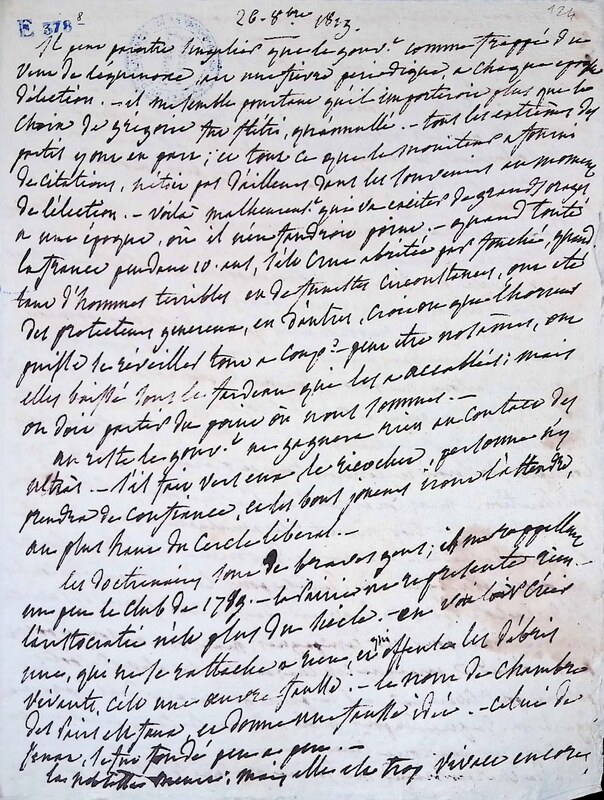 E 378 8
26. 8bre 1819.
124
Il peut paroitre singulier que le gouv.t comme frappé d'une
de fievre periodique, a chaque epoque
d'élection. - il me semble pourtant qu'il importeroit plus que le
choix de gregoire fut flétri, qu'annullé. - tous les extrêmes des
partis y sont en part; et tout ce que le moniteur a fourni
de citations, n'étoit pas d'ailleurs dans les souvenirs au moment
de l'élection. - Voilà malheureus.t qui va exciter de grands orages
a une époque, où il n'en faudroit point. - quand toute
la france pendant 10 ans, s'est crue abritée par fouché, quand
tant d'hommes terribles en de funestes circonstances, ont été
des protecteurs genereux, en d'autres, croit on que l'horreur
puisse se réveiller tout a coup? - peut etre nos ames, ont
elles baissé sous le fardeau qui les a accablés; mais
on doit partir du point où nous sommes. -
au reste le gouv.t ne gagnera rien au contact des
ultras. - s'il fait vers eux le ricochet, personne n'y
prendra de confiance, et les bons iront l'attendre,
au plus haut du cercle liberal. -
les doctrinaires sont de braves gens; ils me rappellent
un peu le club de 1789. - la pairie ne represente rien. -
l'aristocratie n'est plus du siècle. - en vouloir créer
une, qui ne se rattache a rien, et qui offense les débris
vivants, c'est une œuvre faulse. - le nom de chambre
des pairs est faux, et donne une fausse idée. - celui de
senat, se fut fondé peu a peu. -
las noblesse meurt; mais elle est trop vivace encore,